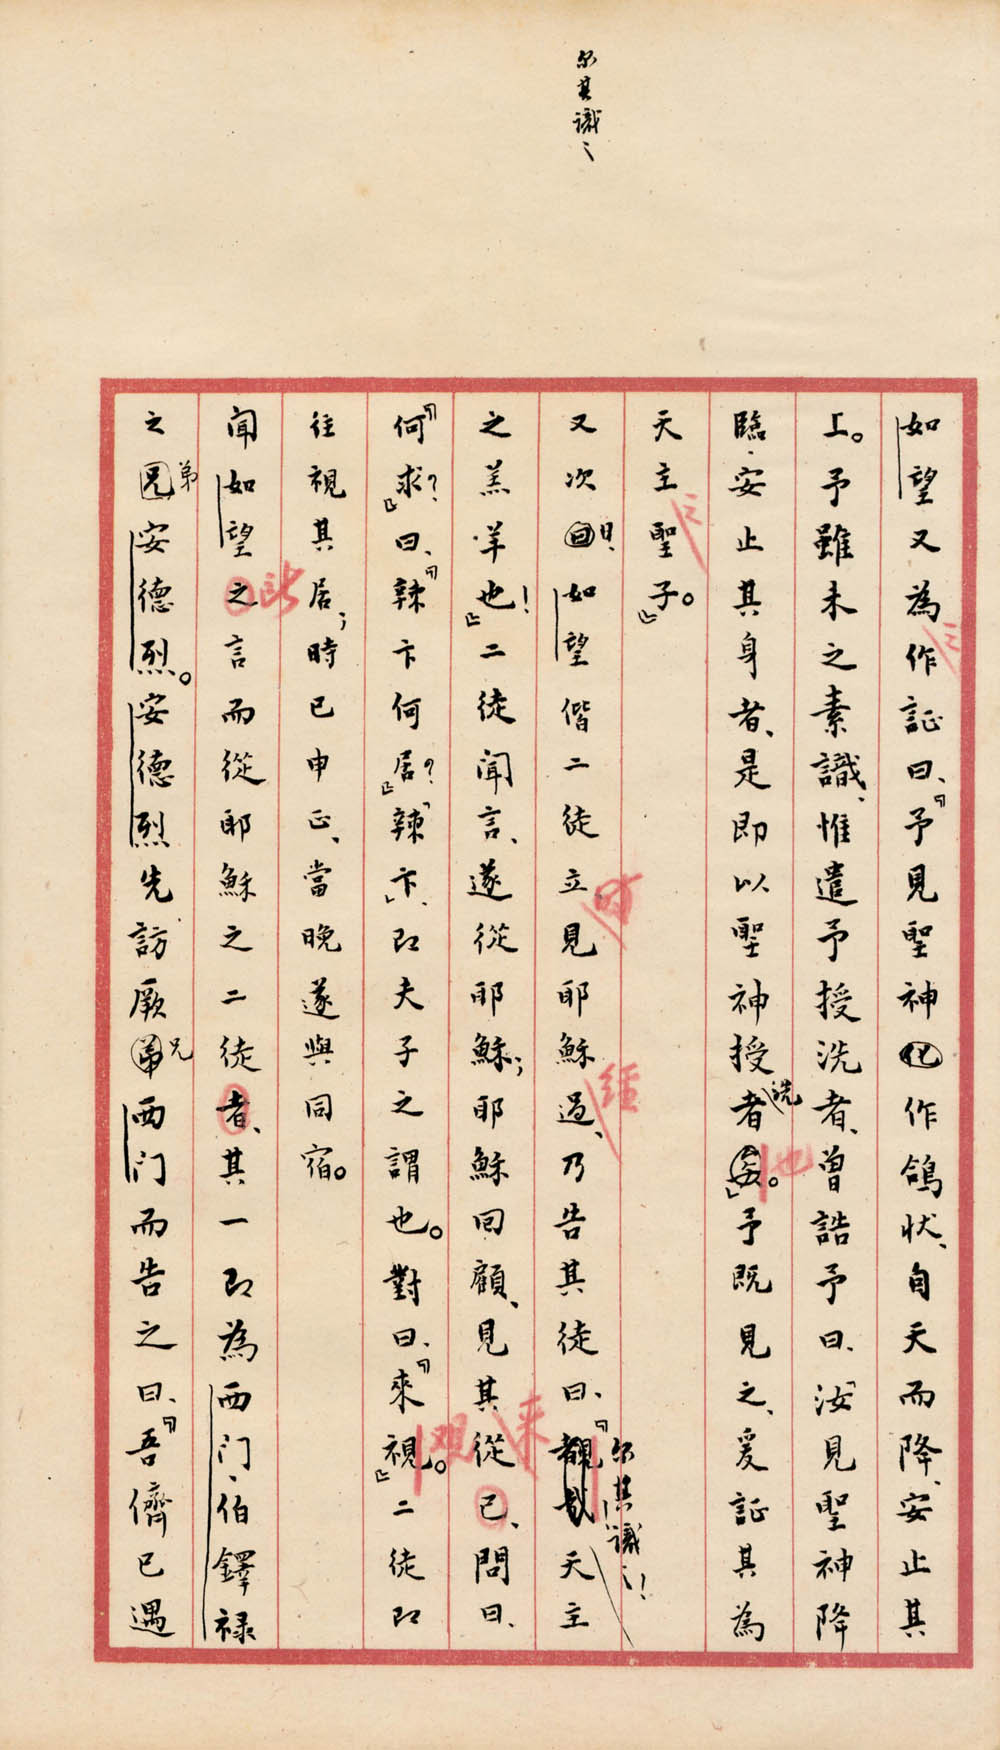 尔其識之
如望又為作証曰、『予見聖神化作鴿狀、自天而降、安止其
上。予雖未之素識、惟遣予授洗者、曾誥予曰、「汝見聖神降
臨、安止其身者、是即以聖神授洗者也。」予既見之、爰証其為
天主聖子。』
又次日、如望偕二徒立見耶穌過、乃告其徒曰、『尔其識之！天主
之羔羊也！』二徒聞言、遂從耶穌；耶穌回顧、見其從己、問曰、
『何求？』曰、『辣卞何居？』「辣卞」、即夫子之謂也。對曰、『來視。』二徒即
往視其居；時已申正、當晚遂與同宿。
聞如望之言而從耶穌之二徒者、其一即為西门、伯鐸祿
之弟安德烈。安德烈先訪厥兄西门而告之曰、『吾儕已遇
時
經
来
观
此